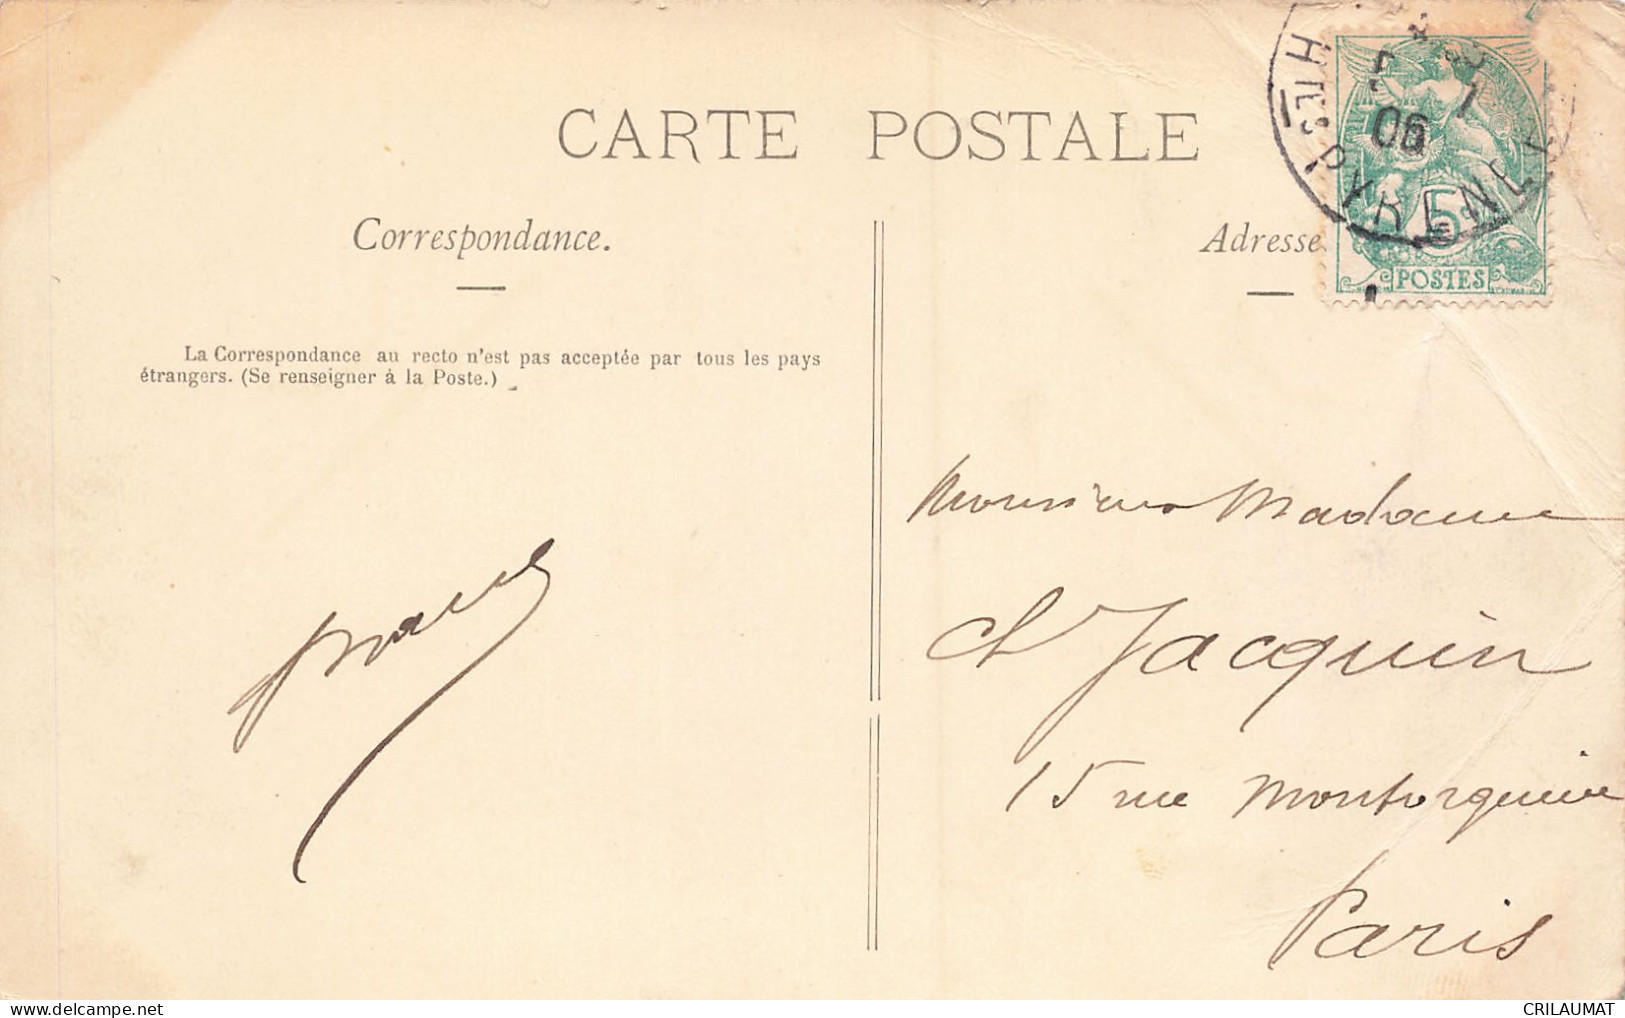 CARTE POSTALE
Correspondance.
Adresse
La Correspondance au recto n'est pas acceptée par tous les pays
étrangers. (Se renseigner à la Poste.)
Htes PYRENEES
06
5c
POSTES
Monsieur Madame
Ch Jacquin
15 rue Montorgueil
Paris
CRILAUMAT